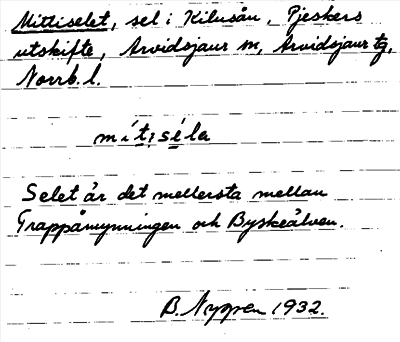 Mittiselet, sel i Kilusån, Pjeskers
utskifte, Arvidsjaur sn, Arvidsjaur tg,
Norrb. l.
mítiséla
Selet är det mellersta mellan
Trappåmynningen och Byskeälven.
B. Nygren 1932.